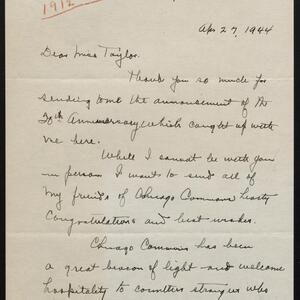 1912
Apr 27, 1944
Dear Miss Taylor.
Thank you so much for
sending to me the announcement of the
50th Anniversary which caught up with
me here.
While I cannot be with you
in person I want to send all of
my friends of Chicago Commons hearty
Congratulations and best wishes.
Chicago Commons has been
a great beacon of light and welcome
hospitality to countless strangers who